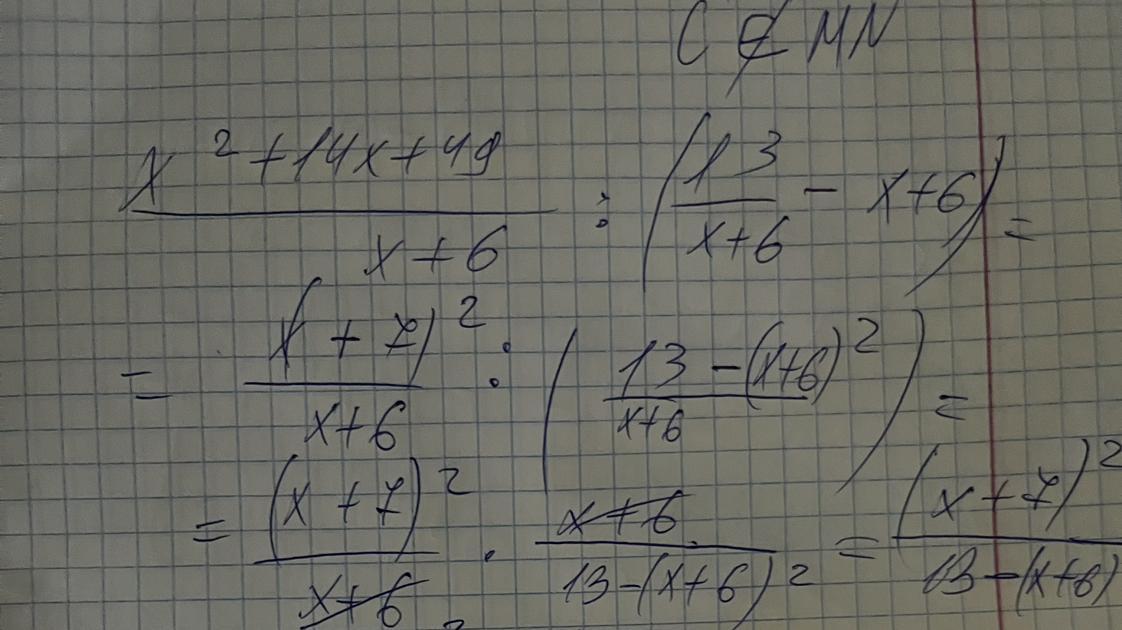 C ∉ MN
x² + 14x + 49 / x + 6 : (13 / x + 6 − x + 6) =
= (x + 7)² / x + 6 : (13 − (x + 6)² / x + 6) =
= (x + 7)² / x + 6 · x + 6 / 13 − (x + 6)² = (x + 7)² / 13 − (x + 6)